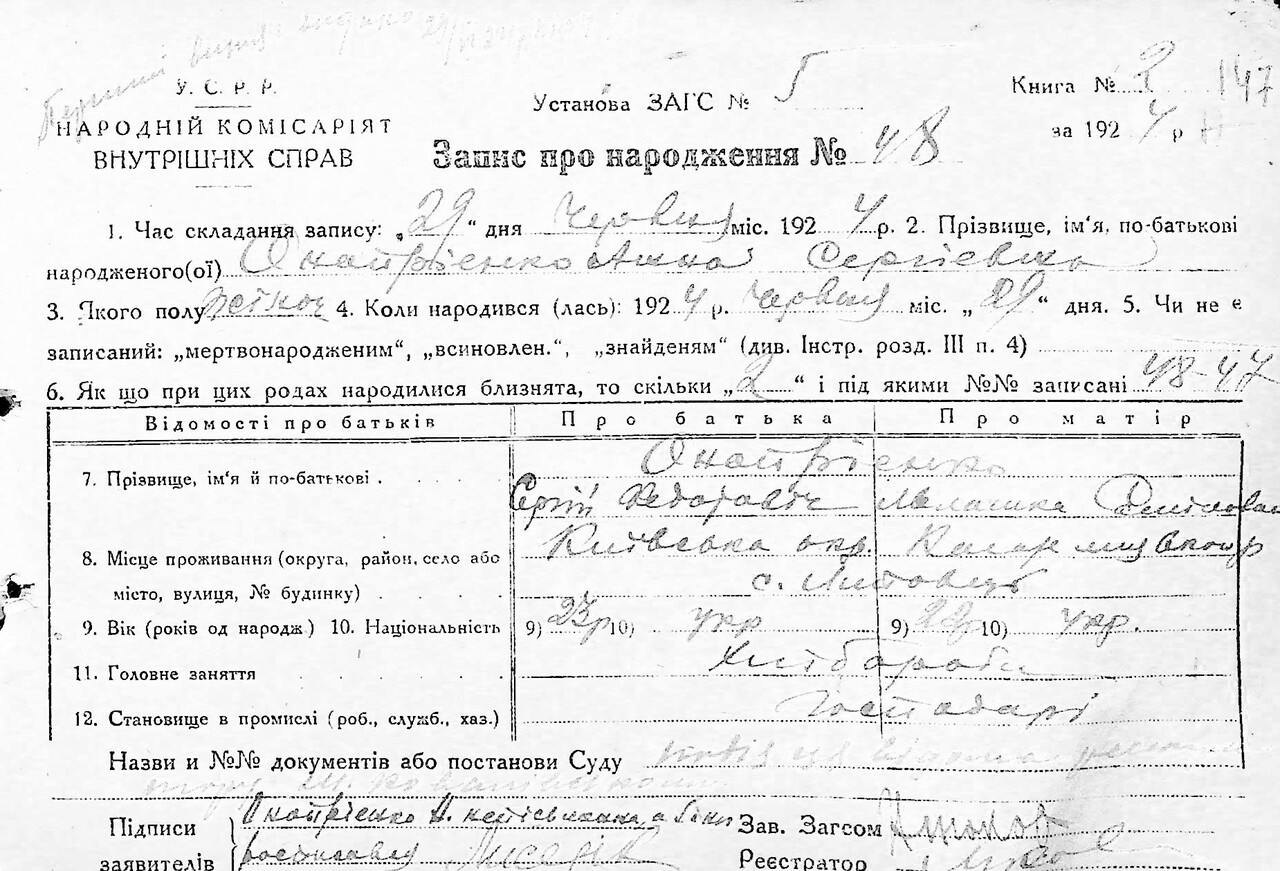 У. С. Р. Р.
НАРОДНІЙ КОМІСАРІЯТ
ВНУТРІШНІХ СПРАВ
Установа ЗАГС № 5
Книга № 2 147
за 1924 р
Запис про народження № 48
1. Час складання запису: „29“ дня Червня міс. 1924 р. 2. Прізвище, ім'я, по-батькові
народженого(ої) Онопрієнко Анна Сергієвна
3. Якого полу жіноч 4. Коли народився (лась): 1924 р. Червня міс. „29“ дня. 5. Чи не є
записаний: „мертвонародженим“, „всиновлен.“, „знайденям“ (див. Інстр. розд. III п. 4)
6. Як що при цих родах народилися близнята, то скільки „2“ і під якими №№ записані 48-47
Відомості про батьків Про батька Про матір
7. Прізвище, ім'я й по-батькові . Онопрієнко
Сергій Федотович Мелашка
8. Місце проживання (округа, район, село або Київська окр.
місто, вулиця, № будинку) с. Литовець
9. Вік (років од народж.) 10. Національність 9) 23р 10) укр 9) 22р 10) укр.
11. Головне заняття Хлібороби
12. Становище в промислі (роб., служб., хаз.) Господарі
Назви и №№ документів або постанови Суду
Підписи Онопрієнко Зав. Загсом
заявителів Реєстратор